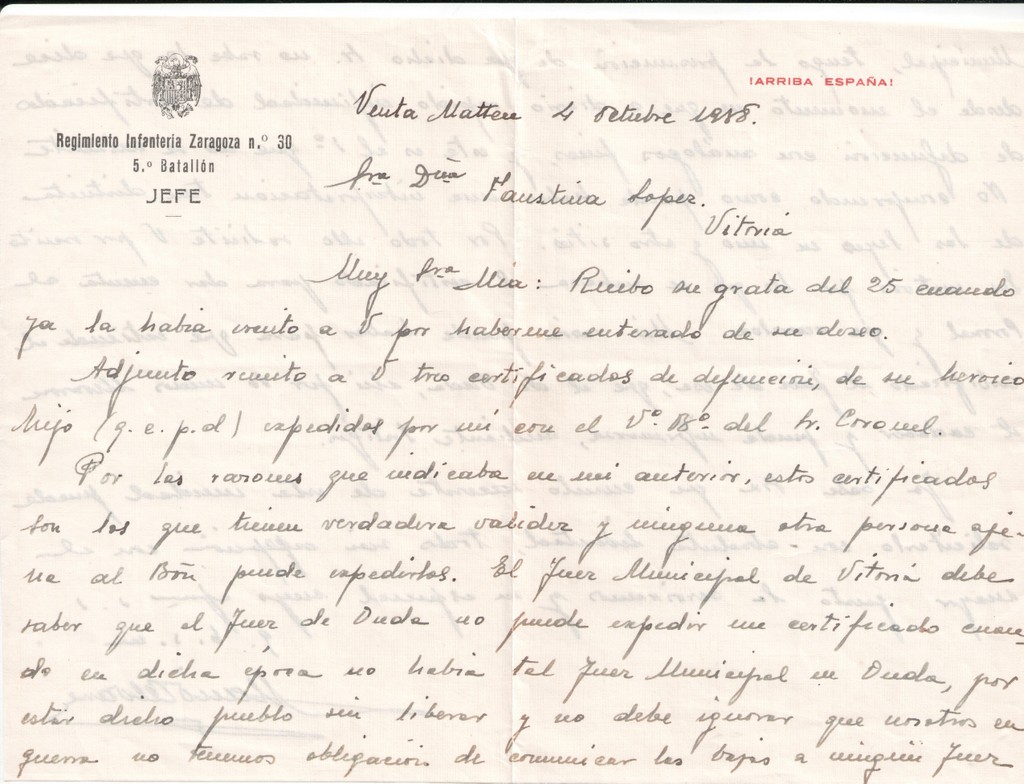 ¡ARRIBA ESPAÑA!
Regimiento Infantería Zaragoza n.º 30
5.º Batallón
JEFE
Venta Mattea 4 Octubre 1938.
Sra Dña
Faustina Lopez.
Vitoria
Muy Sra Mia: Recibo su grata del 25 cuando
ya la habia escrito a V por haberme enterado de su deseo.
Adjunto remito a V tres certificados de defuncion, de su heroico
hijo (q. e. p. d) expedidos por mi con el Vº Bº del Sr. Coronel.
Por las razones que indicaba en mi anterior, estos certificados
son los que tienen verdadera validez y ninguna otra persona aje-
na al Bón puede expedirlos. El Juez Municipal de Vitoria debe
saber que el Juez de Onda no puede expedir un certificado cuan-
do en dicha epoca no habia tal Juez Municipal en Onda, por
estar dicho pueblo sin liberar y no debe ignorar que nosotros en
guerra no tenemos obligación de comunicar las bajas a ningún Juez